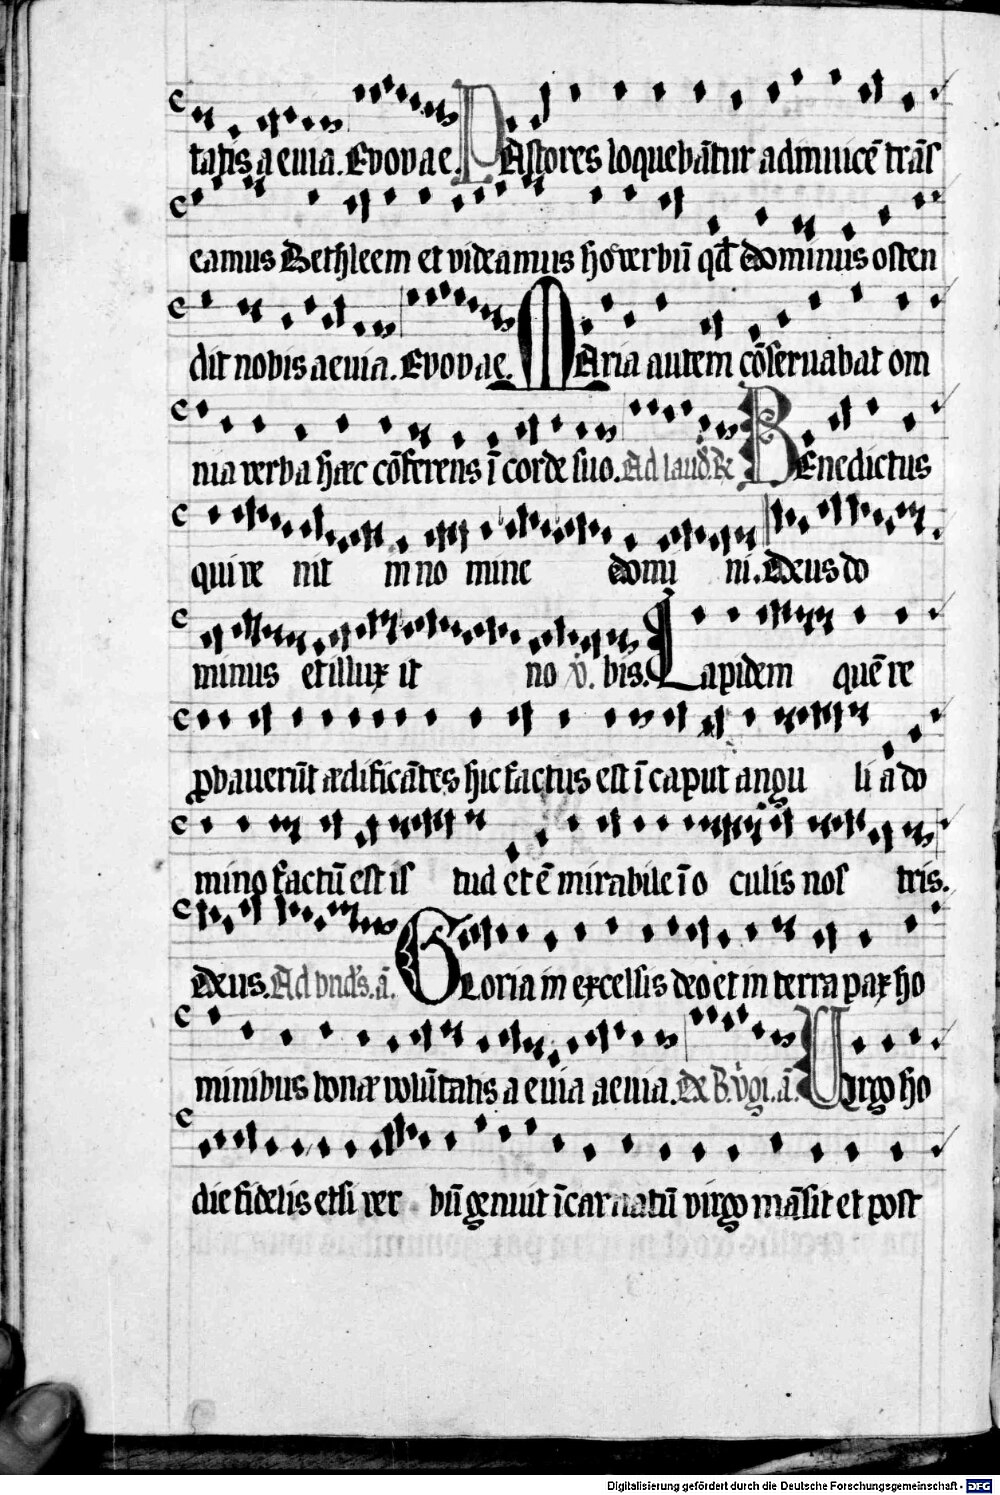 tatis aeuia. Evovae. PAstores loquebāt̄ur admuicē trās
eamus Bethleem et videamus hoc verbū qd̄ dominus osten
dit nobis aeuia. Evovae. MAria autem cōseruabat om
nia verba haec cōferens ī corde suo. Ad laud. BEnedictus
qui ve nit in no mine domi ni. Deus do
minus et illux it no v̇. bis. Lapidem quē re
ꝓbauerūt ædificātes hic factus est ī caput angu li a do
mino factū est is tud et ē mirabile ī o culis nos tris.
Deus. Ad vnds. ā. GLoria in excelsis deo et in terra pax ho
minibus bonæ volūtatis a euia aeuia. De B. v̇gi. ā. Uirgo ho
die fidelis etsi ver bū genuit īcarnatū virgo māsit et post
Digitalisierung gefördert durch die Deutsche Forschungsgemeinschaft - DFG